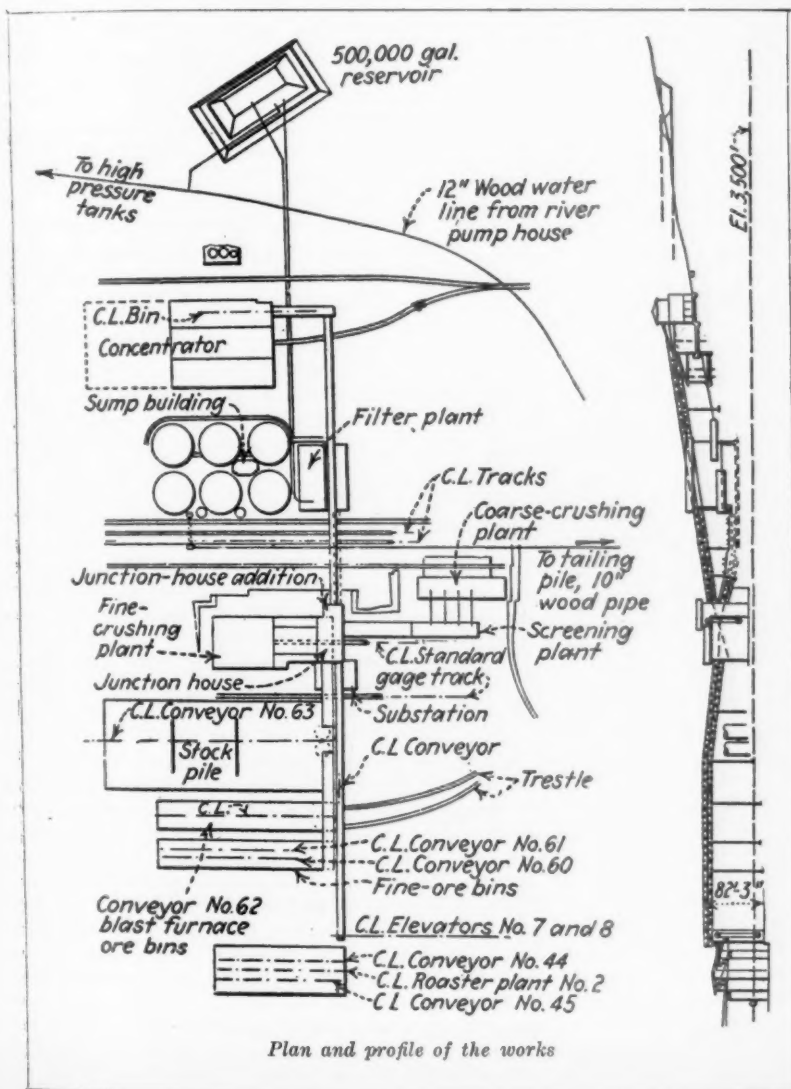 500,000 gal.
reservoir
To high
pressure
tanks
12" Wood water
line from river
pump house
El. 3,500'
C.L. Bin
Concentrator
Sump building
Filter plant
C.L. Tracks
Coarse-crushing
plant
Junction-house addition
To tailing
pile, 10"
wood pipe
Fine-
crushing
plant
Screening
plant
C.L. Standard
gage track
Junction house
Substation
C.L. Conveyor No. 63
Stock
pile
C.L. Conveyor
Trestle
C.L.
C.L. Conveyor No. 61
C.L. Conveyor No. 60
Fine-ore bins
Conveyor No. 62
blast furnace
ore bins
82'-3"
C.L. Elevators No. 7 and 8
C.L. Conveyor No. 44
C.L. Roaster plant No. 2
C L Conveyor No. 45
Plan and profile of the works